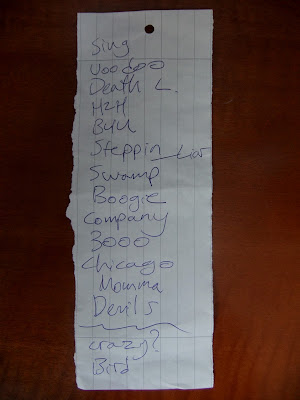 Sing
Voodoo
Death L.
H2H
B4U
Steppin Liar
Swamp
Boogie
Company
3000
Chicago
Momma
Devils
crazy?
Bird